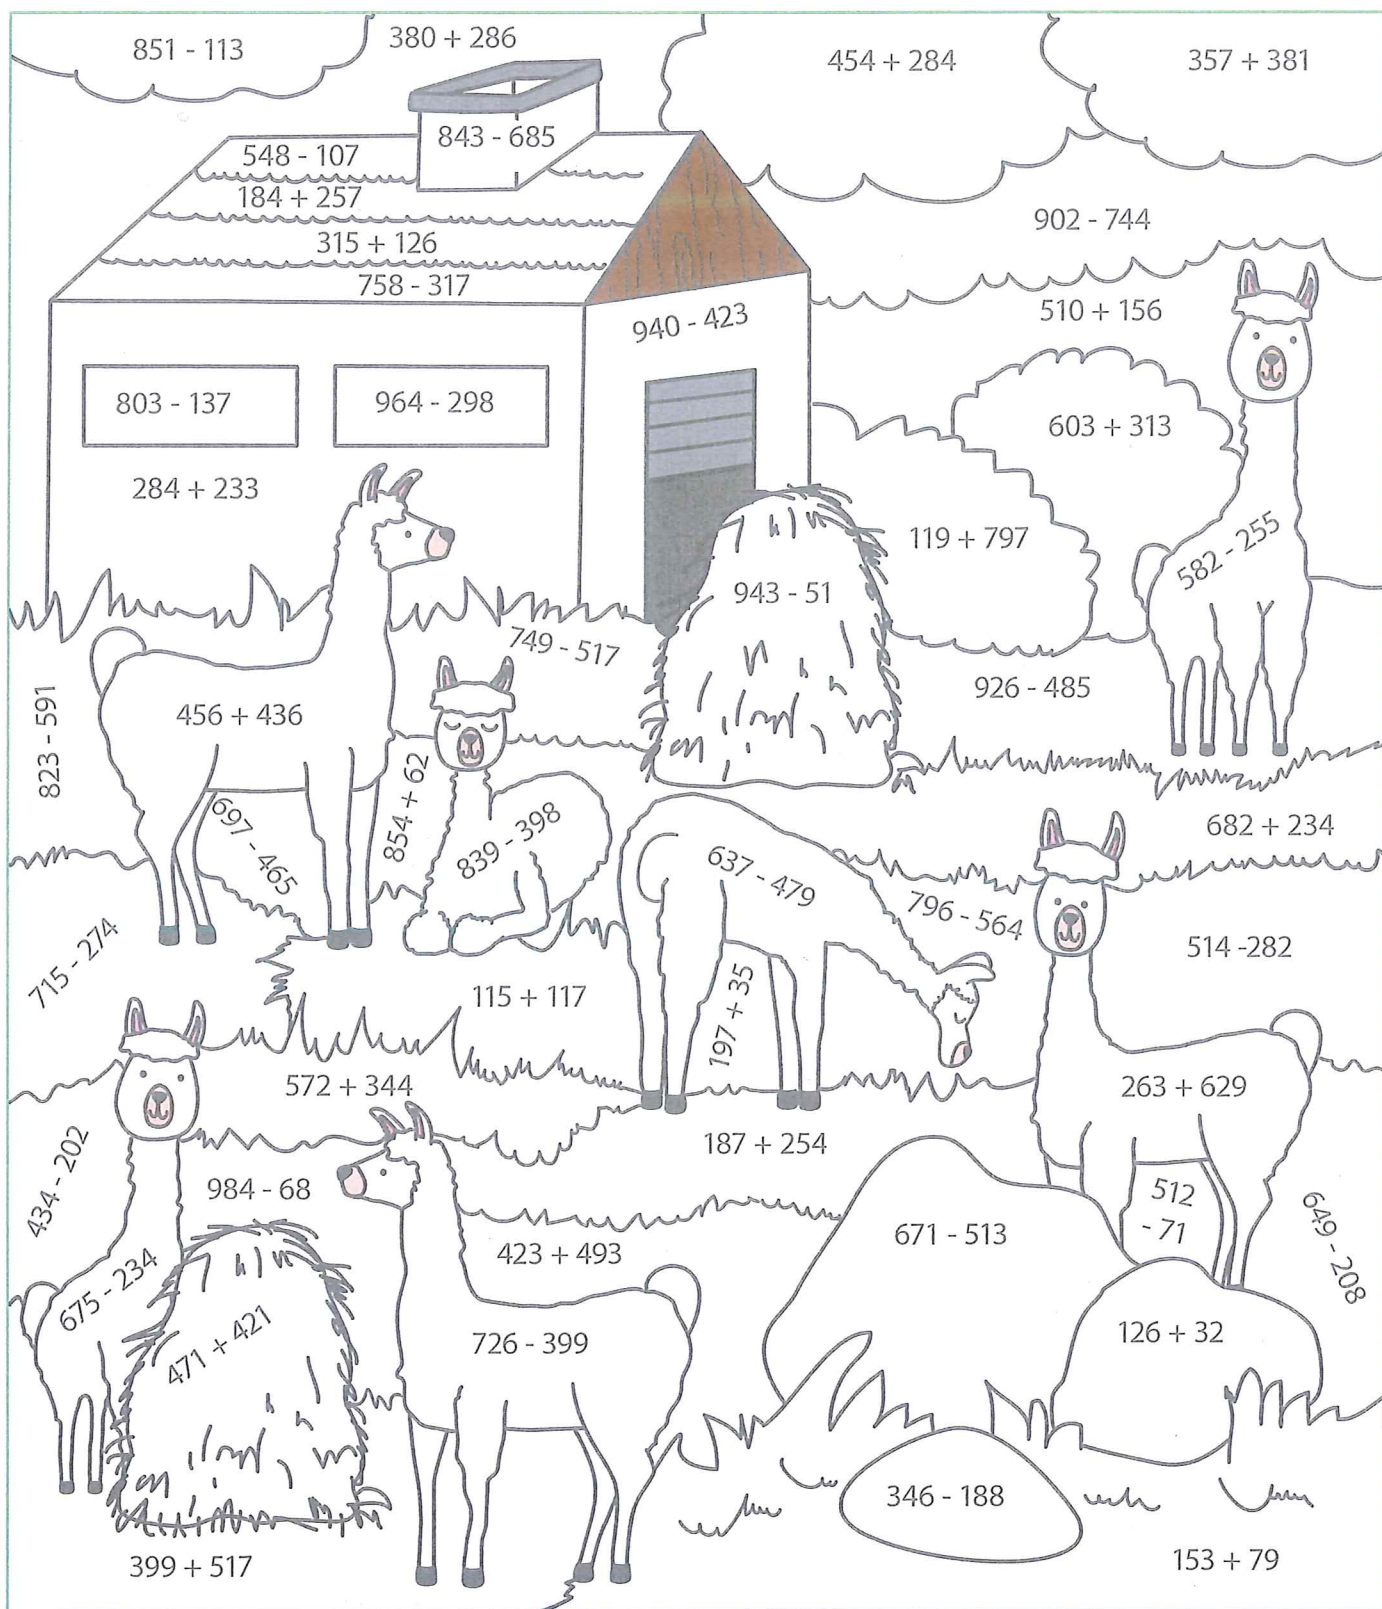 851 - 113
380 + 286
454 + 284
357 + 381
843 - 685
548 - 107
184 + 257
902 - 744
315 + 126
758 - 317
510 + 156
940 - 423
803 - 137
964 - 298
603 + 313
284 + 233
119 + 797
582 - 255
943 - 51
749 - 517
926 - 485
823 - 591
456 + 436
854 + 62
697 - 465
839 - 398
637 - 479
682 + 234
796 - 564
514 -282
715 - 274
115 + 117
197 + 35
572 + 344
263 + 629
187 + 254
434 - 202
984 - 68
512
- 71
649 - 208
671 - 513
423 + 493
675 - 234
471 + 421
726 - 399
126 + 32
346 - 188
399 + 517
153 + 79